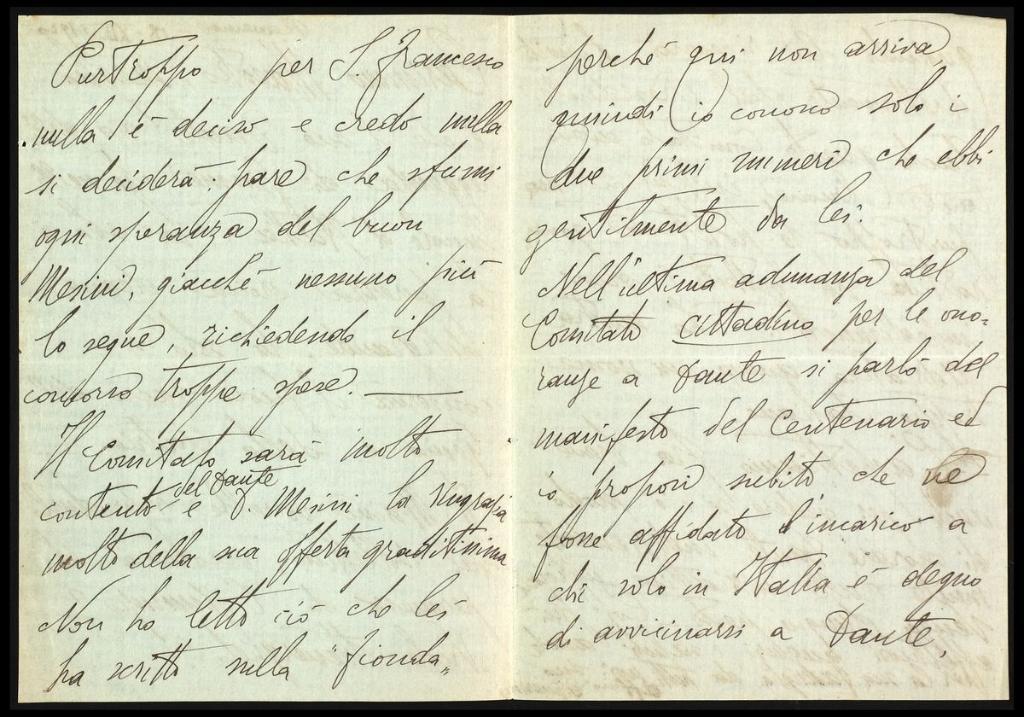 Purtroppo per S. Francesco
nulla é deciso e credo nulla
si deciderà; pare che sfumi
ogni speranza del buon
Mesini, giacché nessuno più
lo segue, richiedendo il
concorso troppe spese. —
Il Comitato sarà molto
del Dante
contento e D. Mesini la ringrazia
molto della sua offerta graditissima
Non ho letto ciò che lei
ha scritto sulla "fionda„
perché qui non arriva,
quindi io conosco solo i
due primi numeri che ebbi
gentilmente da lei.
Nell'ultima adunanza del
Comitato cittadino per le ono=
ranze a Dante si parlò del
manifesto del Centenario ed
io proposi subito che ne
fosse affidato l'incarico a
chi solo in Italia é degno
di avvicinarsi a Dante,